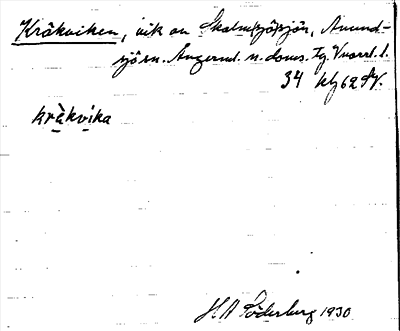 Kråkviken, vik av Skalmsjösjön, Anund-
sjö sn. Ångerml. n. doms. Tg. Vvarsl. l.
34 kbg 62 SV.
kràkvika
H A Söderberg 1930